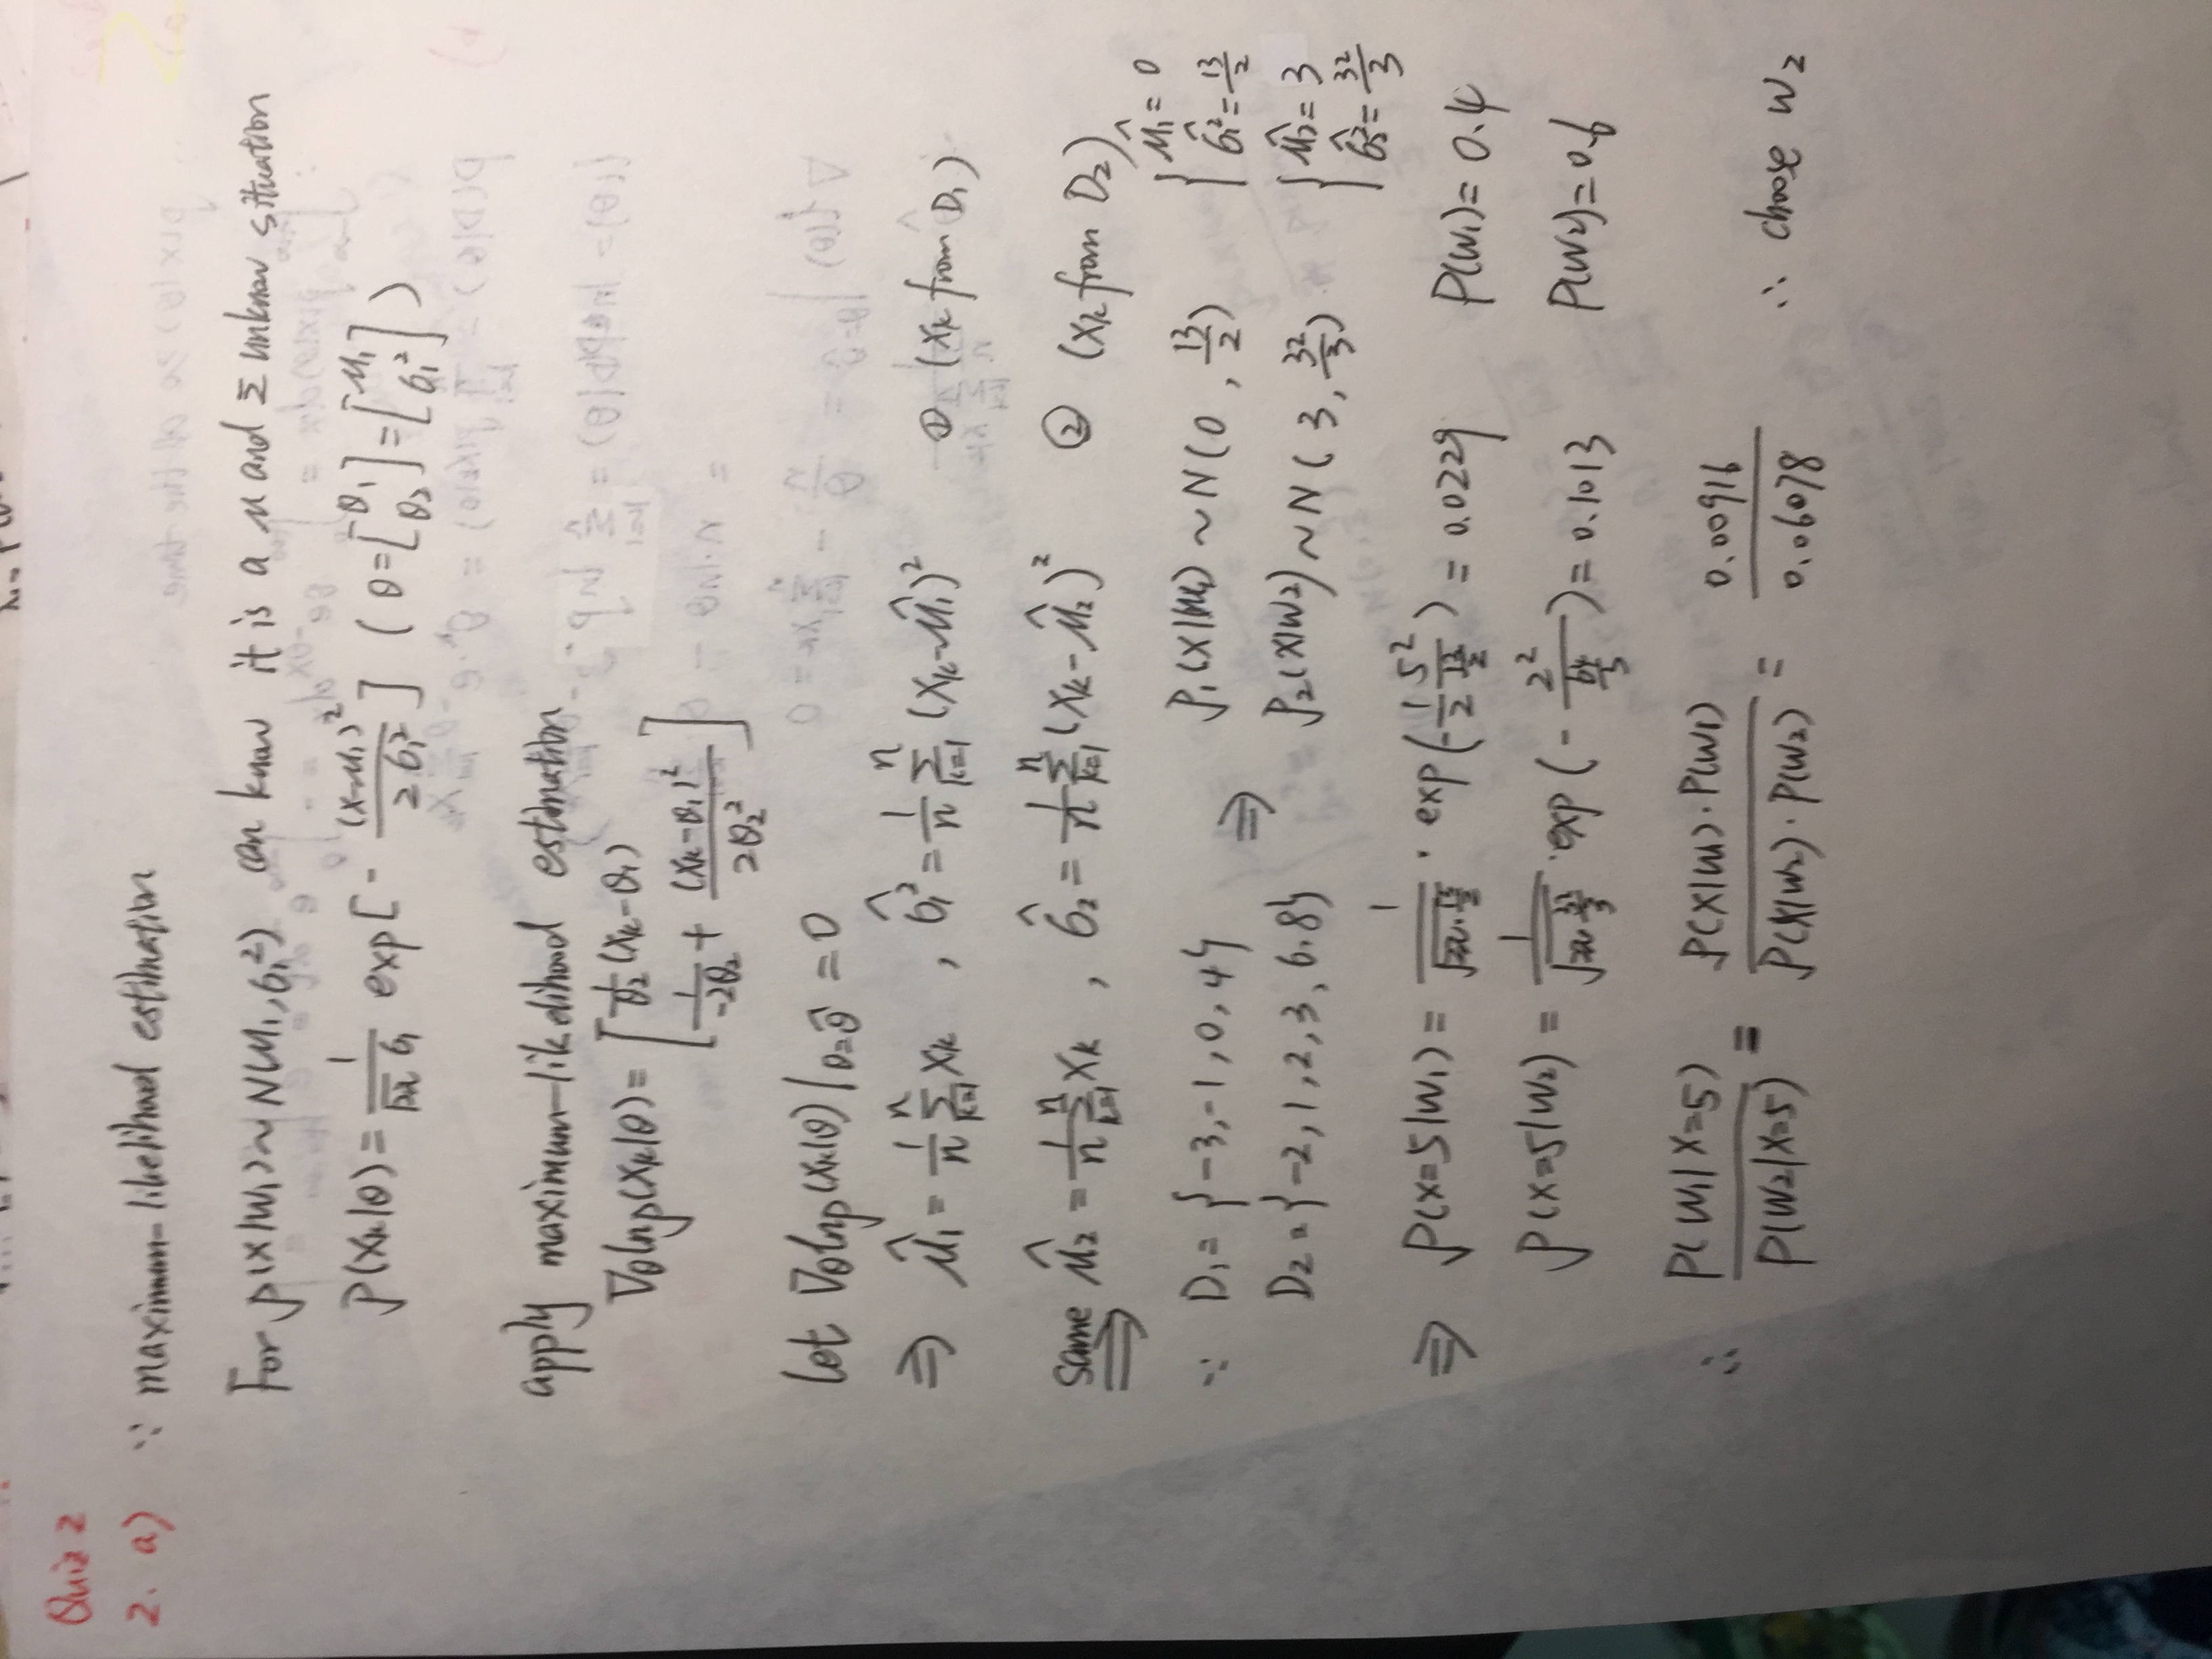 Quiz 2
2. a) ∵ maximum-likelihood estimation
For p(x|w₁)~N(μ₁, σ₁²) can know it is a μ and Σ unknow situation
P(xₖ|θ) = 1/(√2π σ₁) exp[- (x-μ₁)²/(2σ₁²)] (θ=[θ₁ θ₂]=[μ₁ σ₁²])
apply maximum-likelihood estimation
∇θlnp(xₖ|θ) = [1/θ₂ (xₖ-θ₁)
1/(-2θ₂) + (xₖ-θ₁)²/(2θ₂²)]
let ∇θlnp(xₖ|θ)|θ=θ̂ = 0
⇒ μ̂₁ = 1/n Σₖ₌₁ⁿ xₖ , σ̂₁² = 1/n Σₖ₌₁ⁿ (xₖ-μ̂₁)² ① (xₖ from D₁)
same ⇒ μ̂₂ = 1/n Σₖ₌₁ⁿ xₖ , σ̂₂ = 1/n Σₖ₌₁ⁿ (xₖ-μ̂₂)² ② (xₖ from D₂)
∵ D₁ = {-3, -1, 0, 4} ⇒ p₁(x|w₁) ~ N(0, 13/2) { μ̂₁ = 0 σ̂₁² = 13/2
D₂ = {-2, 1, 2, 3, 6, 8} p₂(x|w₂) ~ N(3, 32/3) { μ̂₂ = 3 σ̂₂² = 32/3
⇒ p(x=5|w₁) = 1/√(2π·13/2) · exp(-1/2 5²/(13/2)) = 0.0229 P(w₁) = 0.4
p(x=5|w₂) = 1/√(2π 32/3) · exp(- 2²/(64/3)) = 0.1013 P(w₂) = 0.6
∴ P(w₁|x=5)/P(w₂|x=5) = P(x|w₁)·P(w₁)/P(x|w₂)·P(w₂) = 0.00916/0.06078 ∴ choose w₂